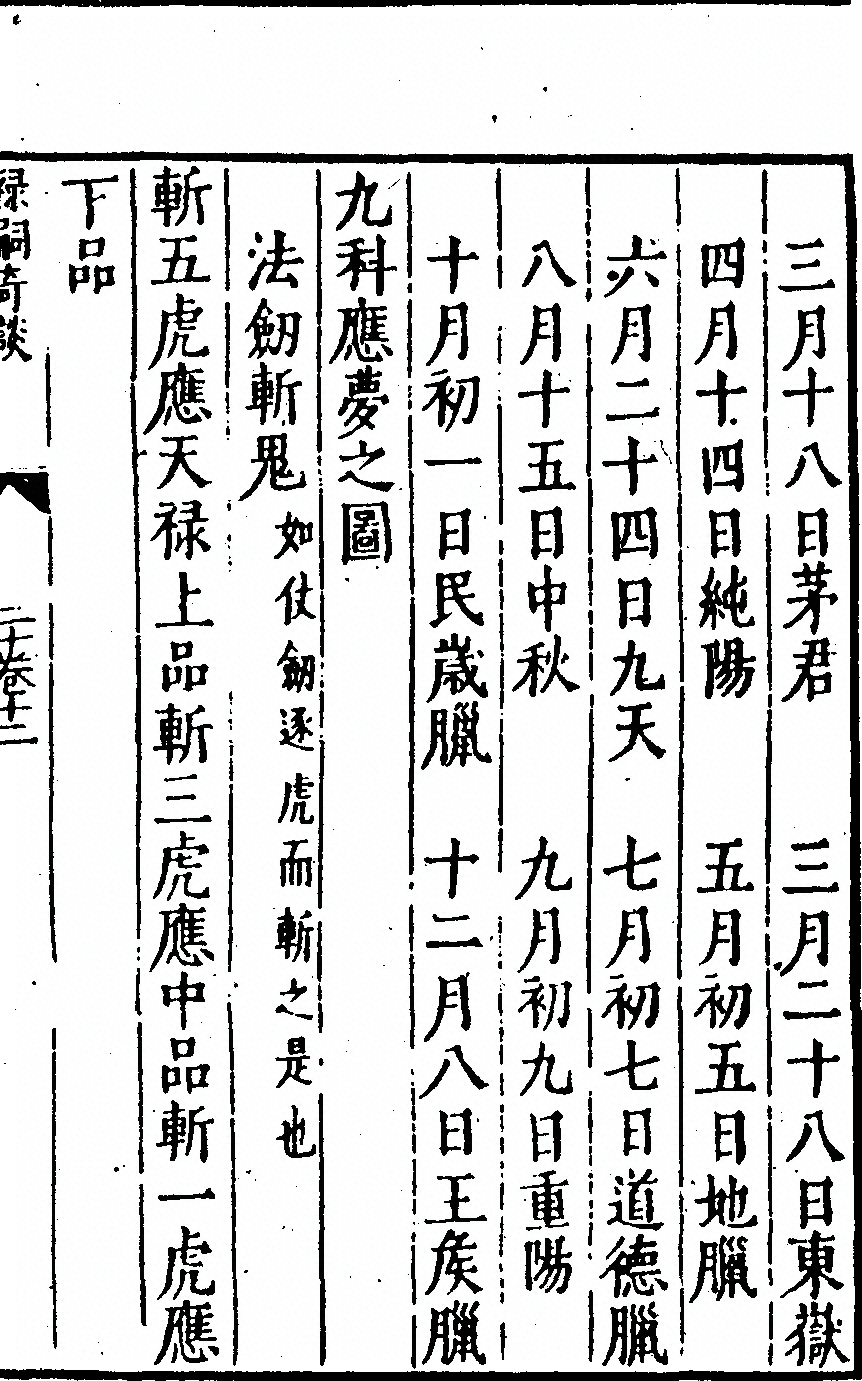 三月十八日茅君　三月二十八日東嶽
四月十四日純陽　五月初五日地臘
六月二十四日九天　七月初七日道德臘
八月十五日中秋　九月初九日重陽
十月初一日民歲臘　十二月八日王侯臘
九科應夢之圖
法劒斬鬼 如仗劒逐虎而斬之是也
斬五虎應天祿上品斬三虎應中品斬一虎應
下品
祿嗣奇談 二十卷十二